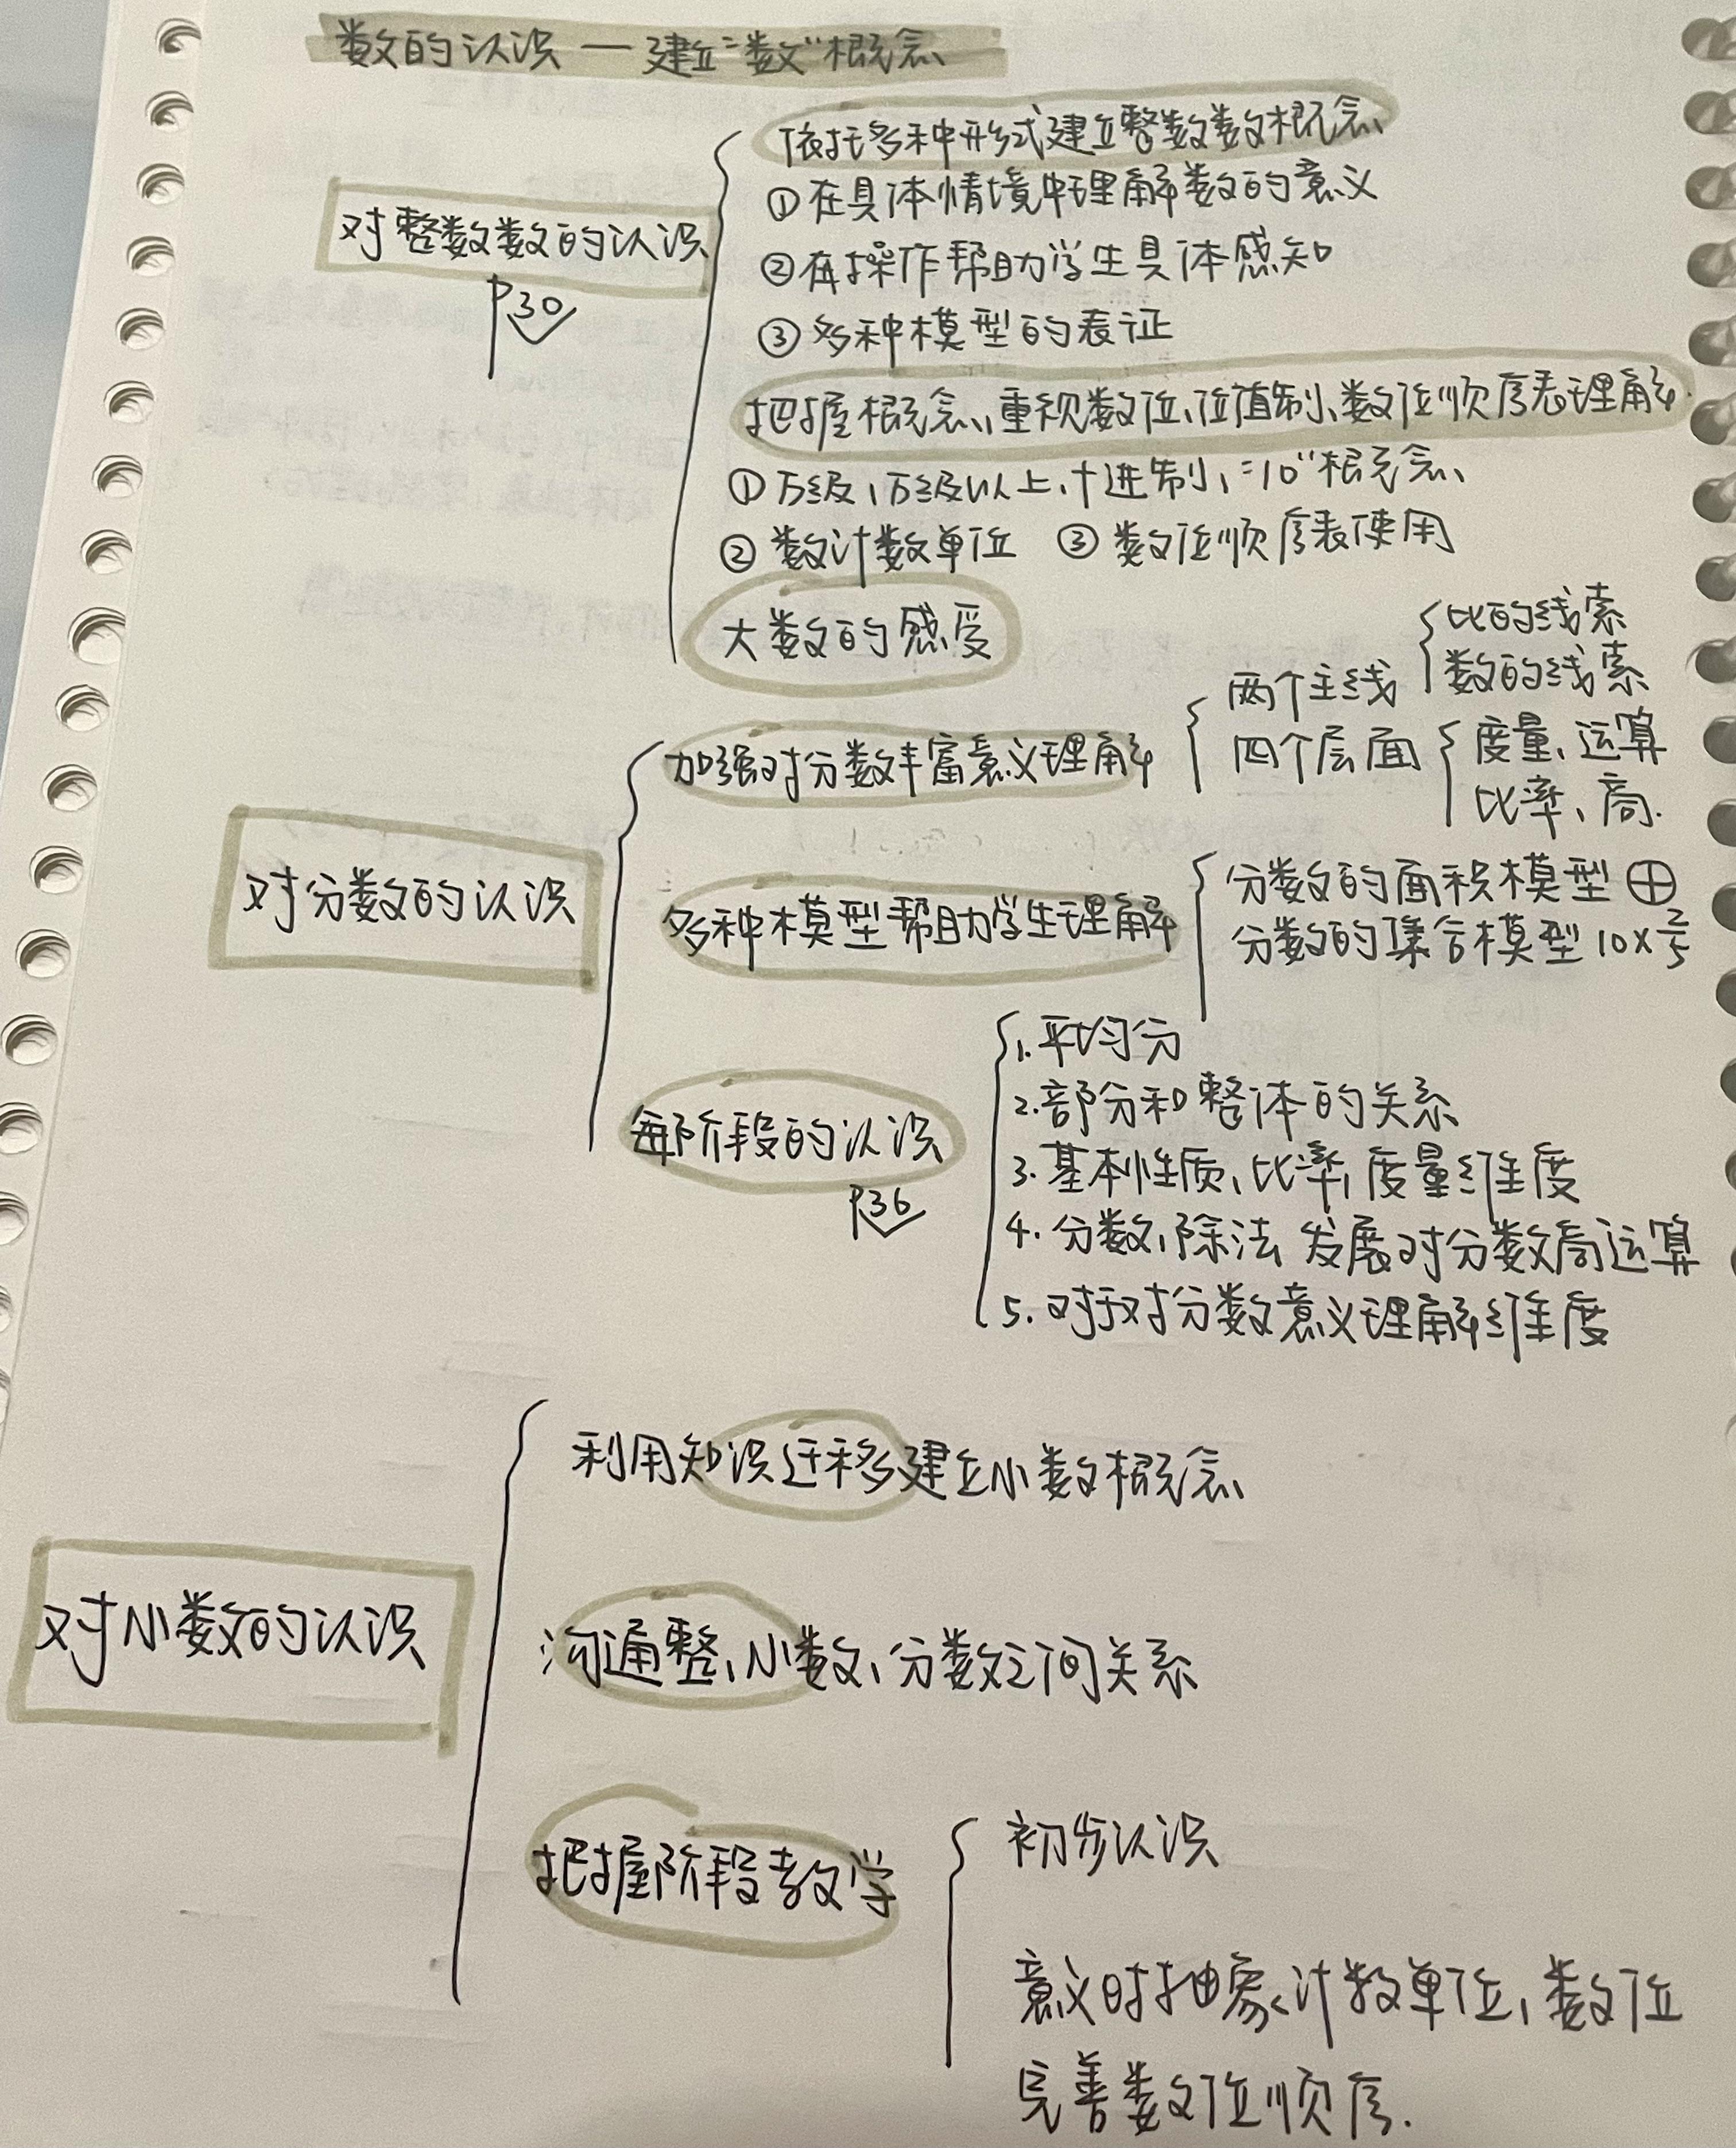 数的认识 — 建立"数"概念
对整数数的认识
P30
依托多种形式建立整数数概念
①在具体情境中理解数的意义
②在操作帮助学生具体感知
③多种模型的表证
把握概念、重视数位、位值制、数位顺序表理解
①万级、万级以上、十进制、"10"概念
②数计数单位 ③数位顺序表使用
大数的感受
对分数的认识
加强对分数丰富意义理解
两个主线
比的线索
数的线索
四个层面
度量、运算
比率、商.
多种模型帮助学生理解
分数的面积模型
分数的集合模型 10×2/5
每阶段的认识
P36
1.平均分
2.部分和整体的关系
3.基本性质、比率、度量维度
4.分数、除法 发展对分数商运算
5.对于对分数意义理解维度
对小数的认识
利用知识迁移建立小数概念
沟通整、小数、分数之间关系
把握阶段教学
初步认识
意义时抽象计数单位、数位
完善数位顺序.